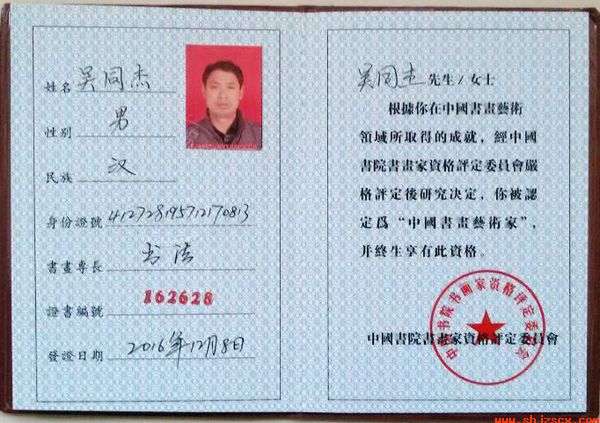 姓名 吴同杰
性别 男
民族 汉
身份證號 412728195712170813
書畫專長 书法
證書編號 162628
發證日期 2016年12月8日
吴同杰 先生/女士
根據你在中國書畫藝術
領域所取得的成就，經中國
書院書畫家資格評定委員會嚴
格評定後研究决定，你被認
定爲“中國書畫藝術家”，
并終生享有此資格。
中國書院書畫家資格評定委員會
中国书院书画家资格评定委员会